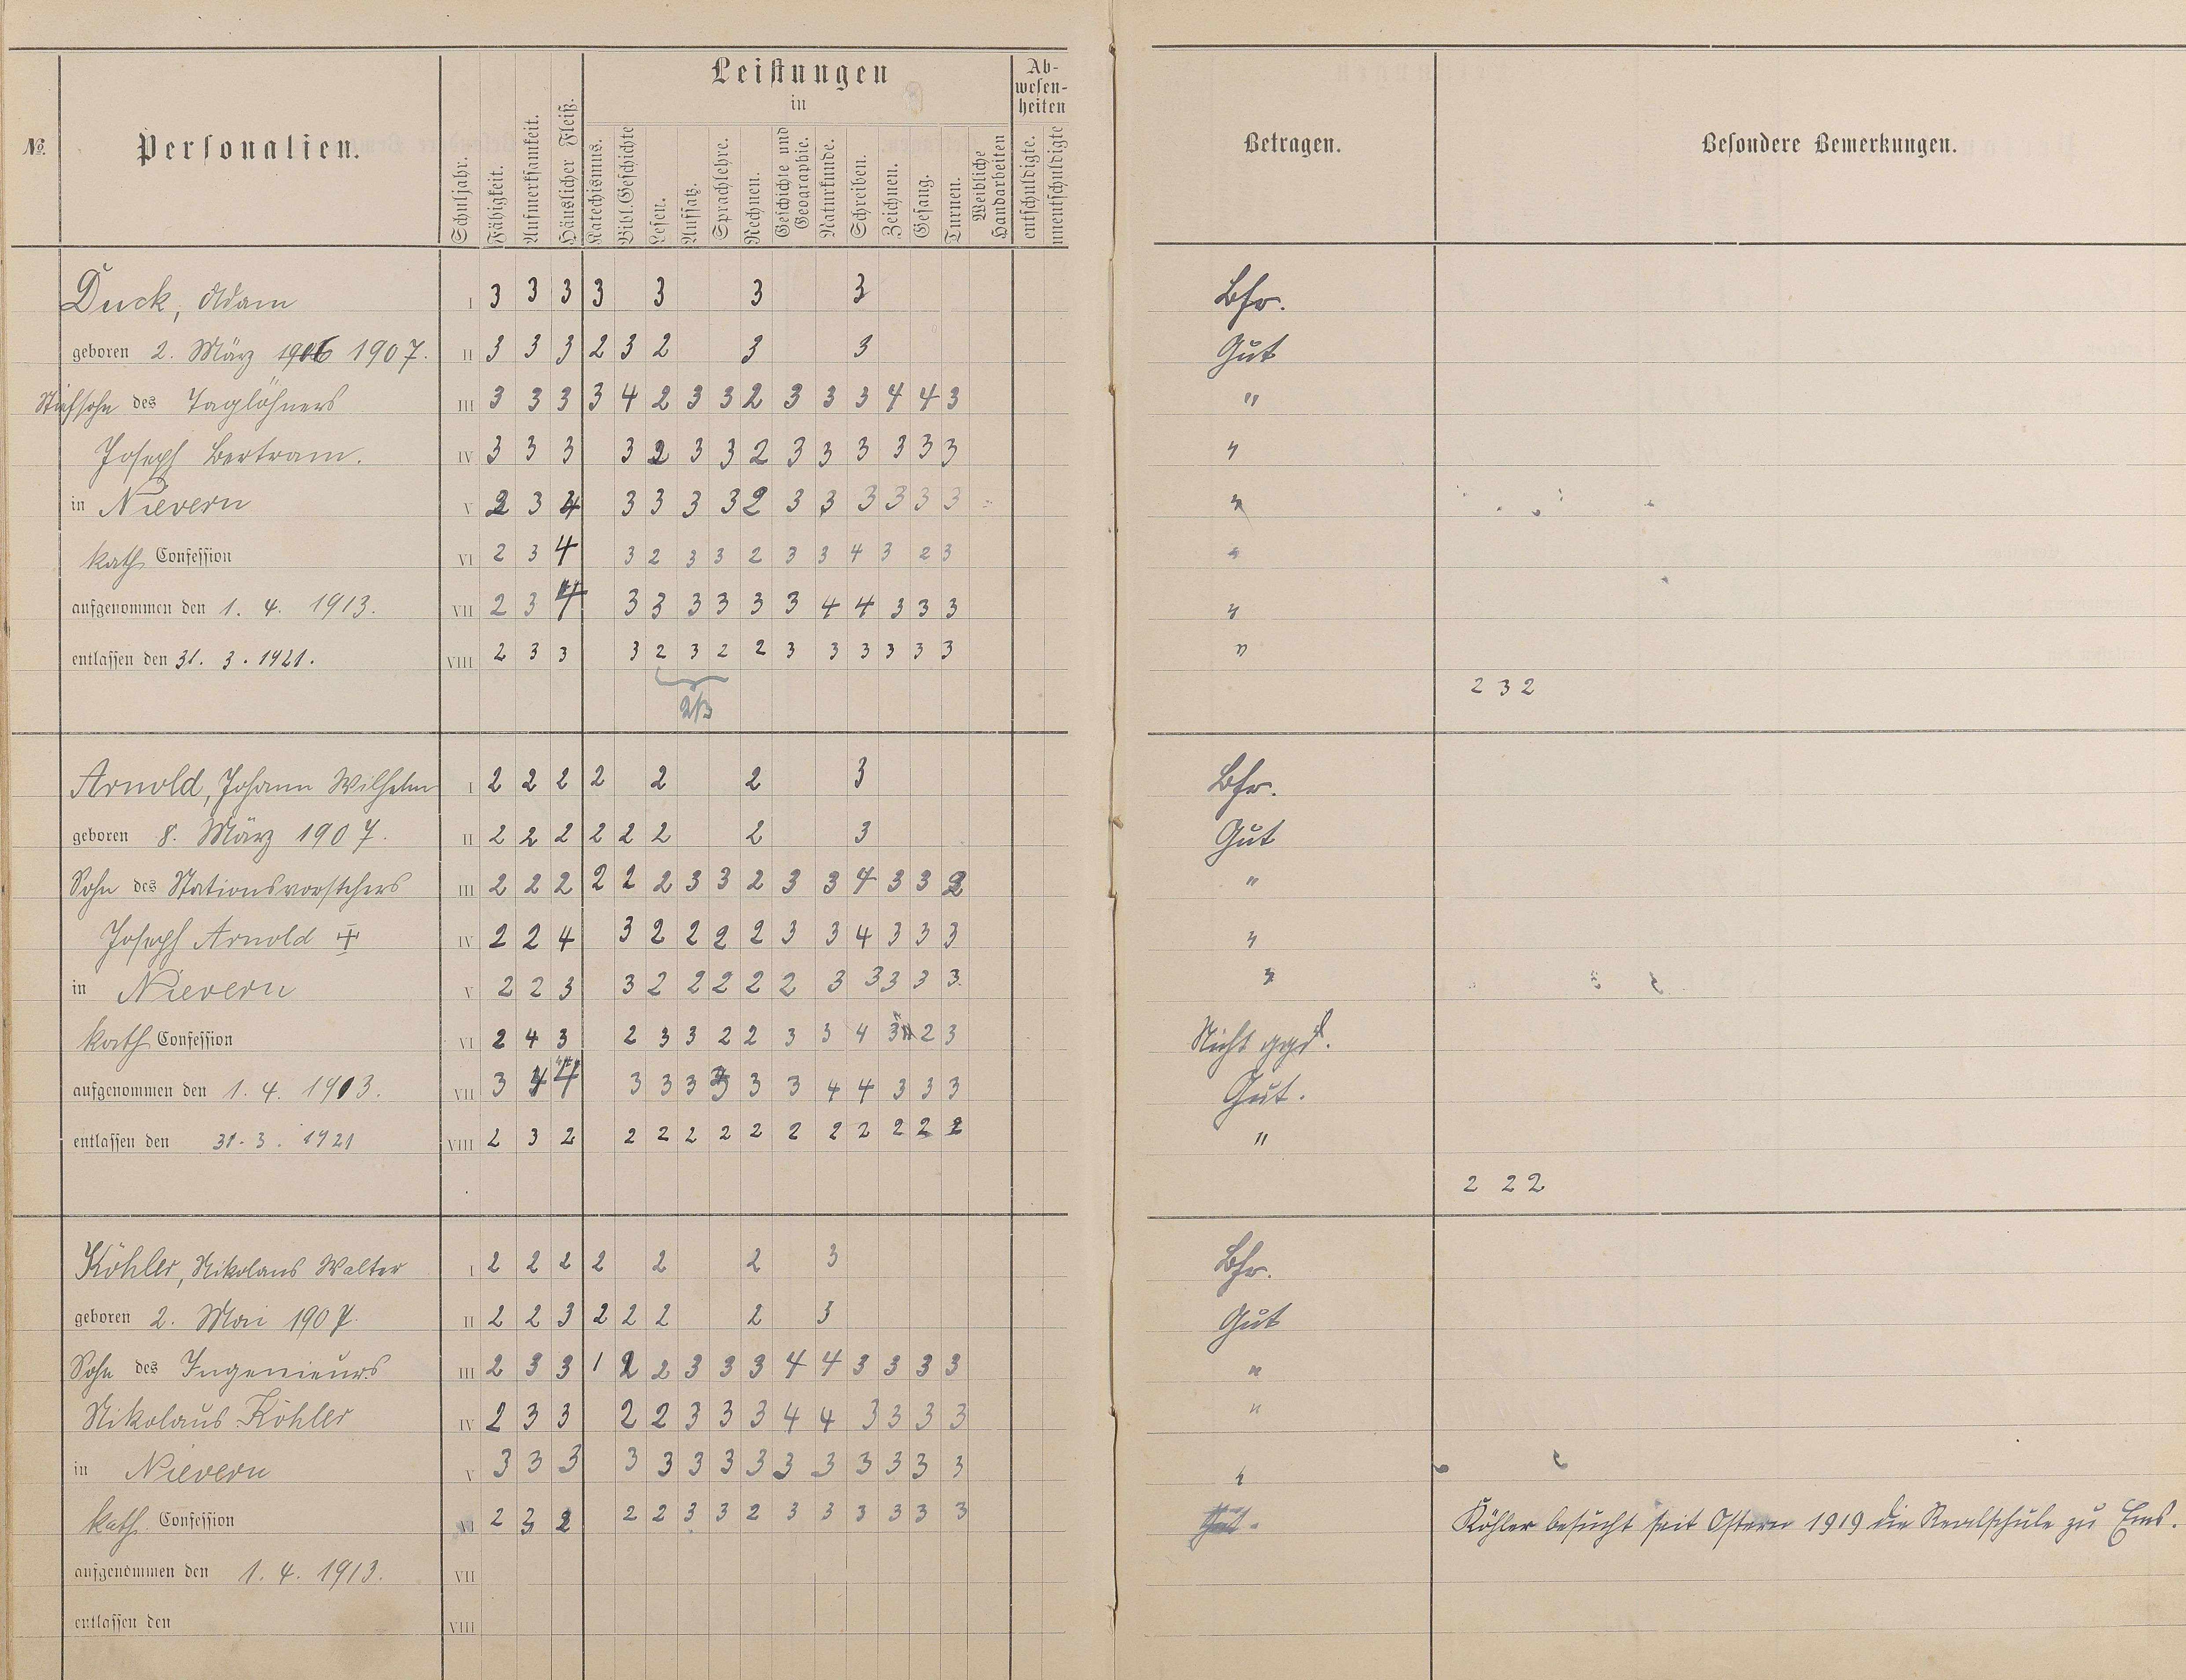 Leistungen
in
Ab-
wesen-
heiten
№.
Personalien.
Schuljahr.
Fähigkeit.
Aufmerksamkeit.
Häuslicher Fleiß.
Katechismus.
Bibl. Geschichte
Lesen.
Aufsatz.
Sprachlehre.
Rechnen.
Geschichte und
Geographie.
Naturkunde.
Schreiben.
Zeichnen.
Gesang.
Turnen.
Weibliche
Handarbeiten
entschuldigte.
unentschuldigte
Betragen.
Besondere Bemerkungen.
Duck, Adam I 3 3 3 3 3 3 3 Bfr.
geboren 2. März 1906 1907. II 3 3 3 2 3 2 3 3 Gut
Stiefsohn des Taglöhners III 3 3 3 3 4 2 3 3 2 3 3 3 4 4 3 "
Joseph Bertram. IV 3 3 3 3 2 3 3 2 3 3 3 3 3 3 "
in Nievern V 2 3 4 3 3 3 3 2 3 3 3 3 3 3 "
kath Confession VI 2 3 4 3 2 3 3 2 3 3 4 3 2 3 "
aufgenommen den 1. 4. 1913. VII 2 3 4 3 3 3 3 3 3 4 4 3 3 3 "
entlassen den 31. 3. 1921. VIII 2 3 3 3 2 3 2 2 3 3 3 3 3 3 "
2/3
2 3 2
Arnold, Johann Wilhelm I 2 2 2 2 2 2 3 Bfr.
geboren 8. März 1907. II 2 2 2 2 2 2 2 3 Gut
Sohn des Stationsvorstehers III 2 2 2 2 2 2 3 3 2 3 3 4 3 3 2 "
Joseph Arnold ✝ IV 2 2 4 3 2 2 2 2 3 3 4 3 3 3 "
in Nievern V 2 2 3 3 2 2 2 2 2 3 3 3 3 3 "
kath Confession VI 2 4 3 2 3 3 2 2 3 3 4 3 2 3 Nicht ggd.
aufgenommen den 1. 4. 1913. VII 3 4 4 3 3 3 3 3 3 4 4 3 3 3 Gut.
entlassen den 31. 3. 1921 VIII 2 3 2 2 2 2 2 2 2 2 2 2 2 2 "
2 2 2
Köhler, Nikolaus Walter I 2 2 2 2 2 2 3 Bfr.
geboren 2. Mai 1907. II 2 2 3 2 2 2 2 3 Gut
Sohn des Ingenieurs III 2 3 3 1 2 2 3 3 3 4 4 3 3 3 3 "
Nikolaus Köhler IV 2 3 3 2 2 3 3 3 4 4 3 3 3 3 "
in Nievern V 3 3 3 3 3 3 3 3 3 3 3 3 3 3 "
kath. Confession VI 2 3 2 2 2 3 3 2 3 3 3 3 3 3 Gut. Köhler besucht seit Ostern 1919 die Realschule zu Ems.
aufgenommen den 1. 4. 1913. VII
entlassen den VIII